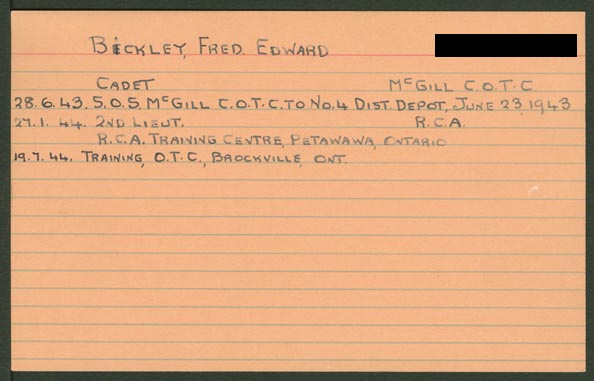 BICKLEY, FRED EDWARD
CADET McGILL C.O.T.C.
28.6.43. S.O.S. McGILL C.O.T.C. TO No.4 DIST. DEPOT, JUNE 23, 1943
27.1.44. 2ND LIEUT. R.C.A.
R.C.A. TRAINING CENTRE, PETAWAWA, ONTARIO
19.7.44. TRAINING, O.T.C., BROCKVILLE, ONT.